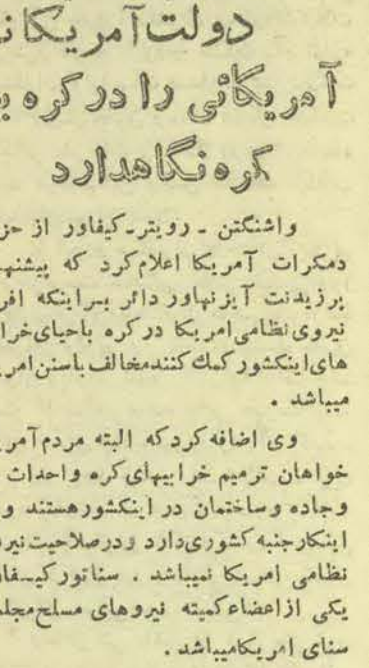 دولت آمریکا
آمریکائی را در کره
کره نگاهدارد
واشنگتن ـ رویتر ـ کیفاور از
دمکرات آمریکا اعلام کرد که
پرزیدنت آیزنهاور دائر براینکه
نیروی نظامی امریکا در کره باحیای
های اینکشور کمك کنند مخالف باسنن
میباشد .
وی اضافه کرد که البته مردم
خواهان ترمیم خرابیهای کره و احداث
و جاده و ساختمان در اینکشور هستند و
اینکار جنبه کشوری دارد و در صلاحیت
نظامی امریکا نمیباشد . سناتور
یکی از اعضاء کمیته نیروهای مسلح
سنای امریکا میباشد .